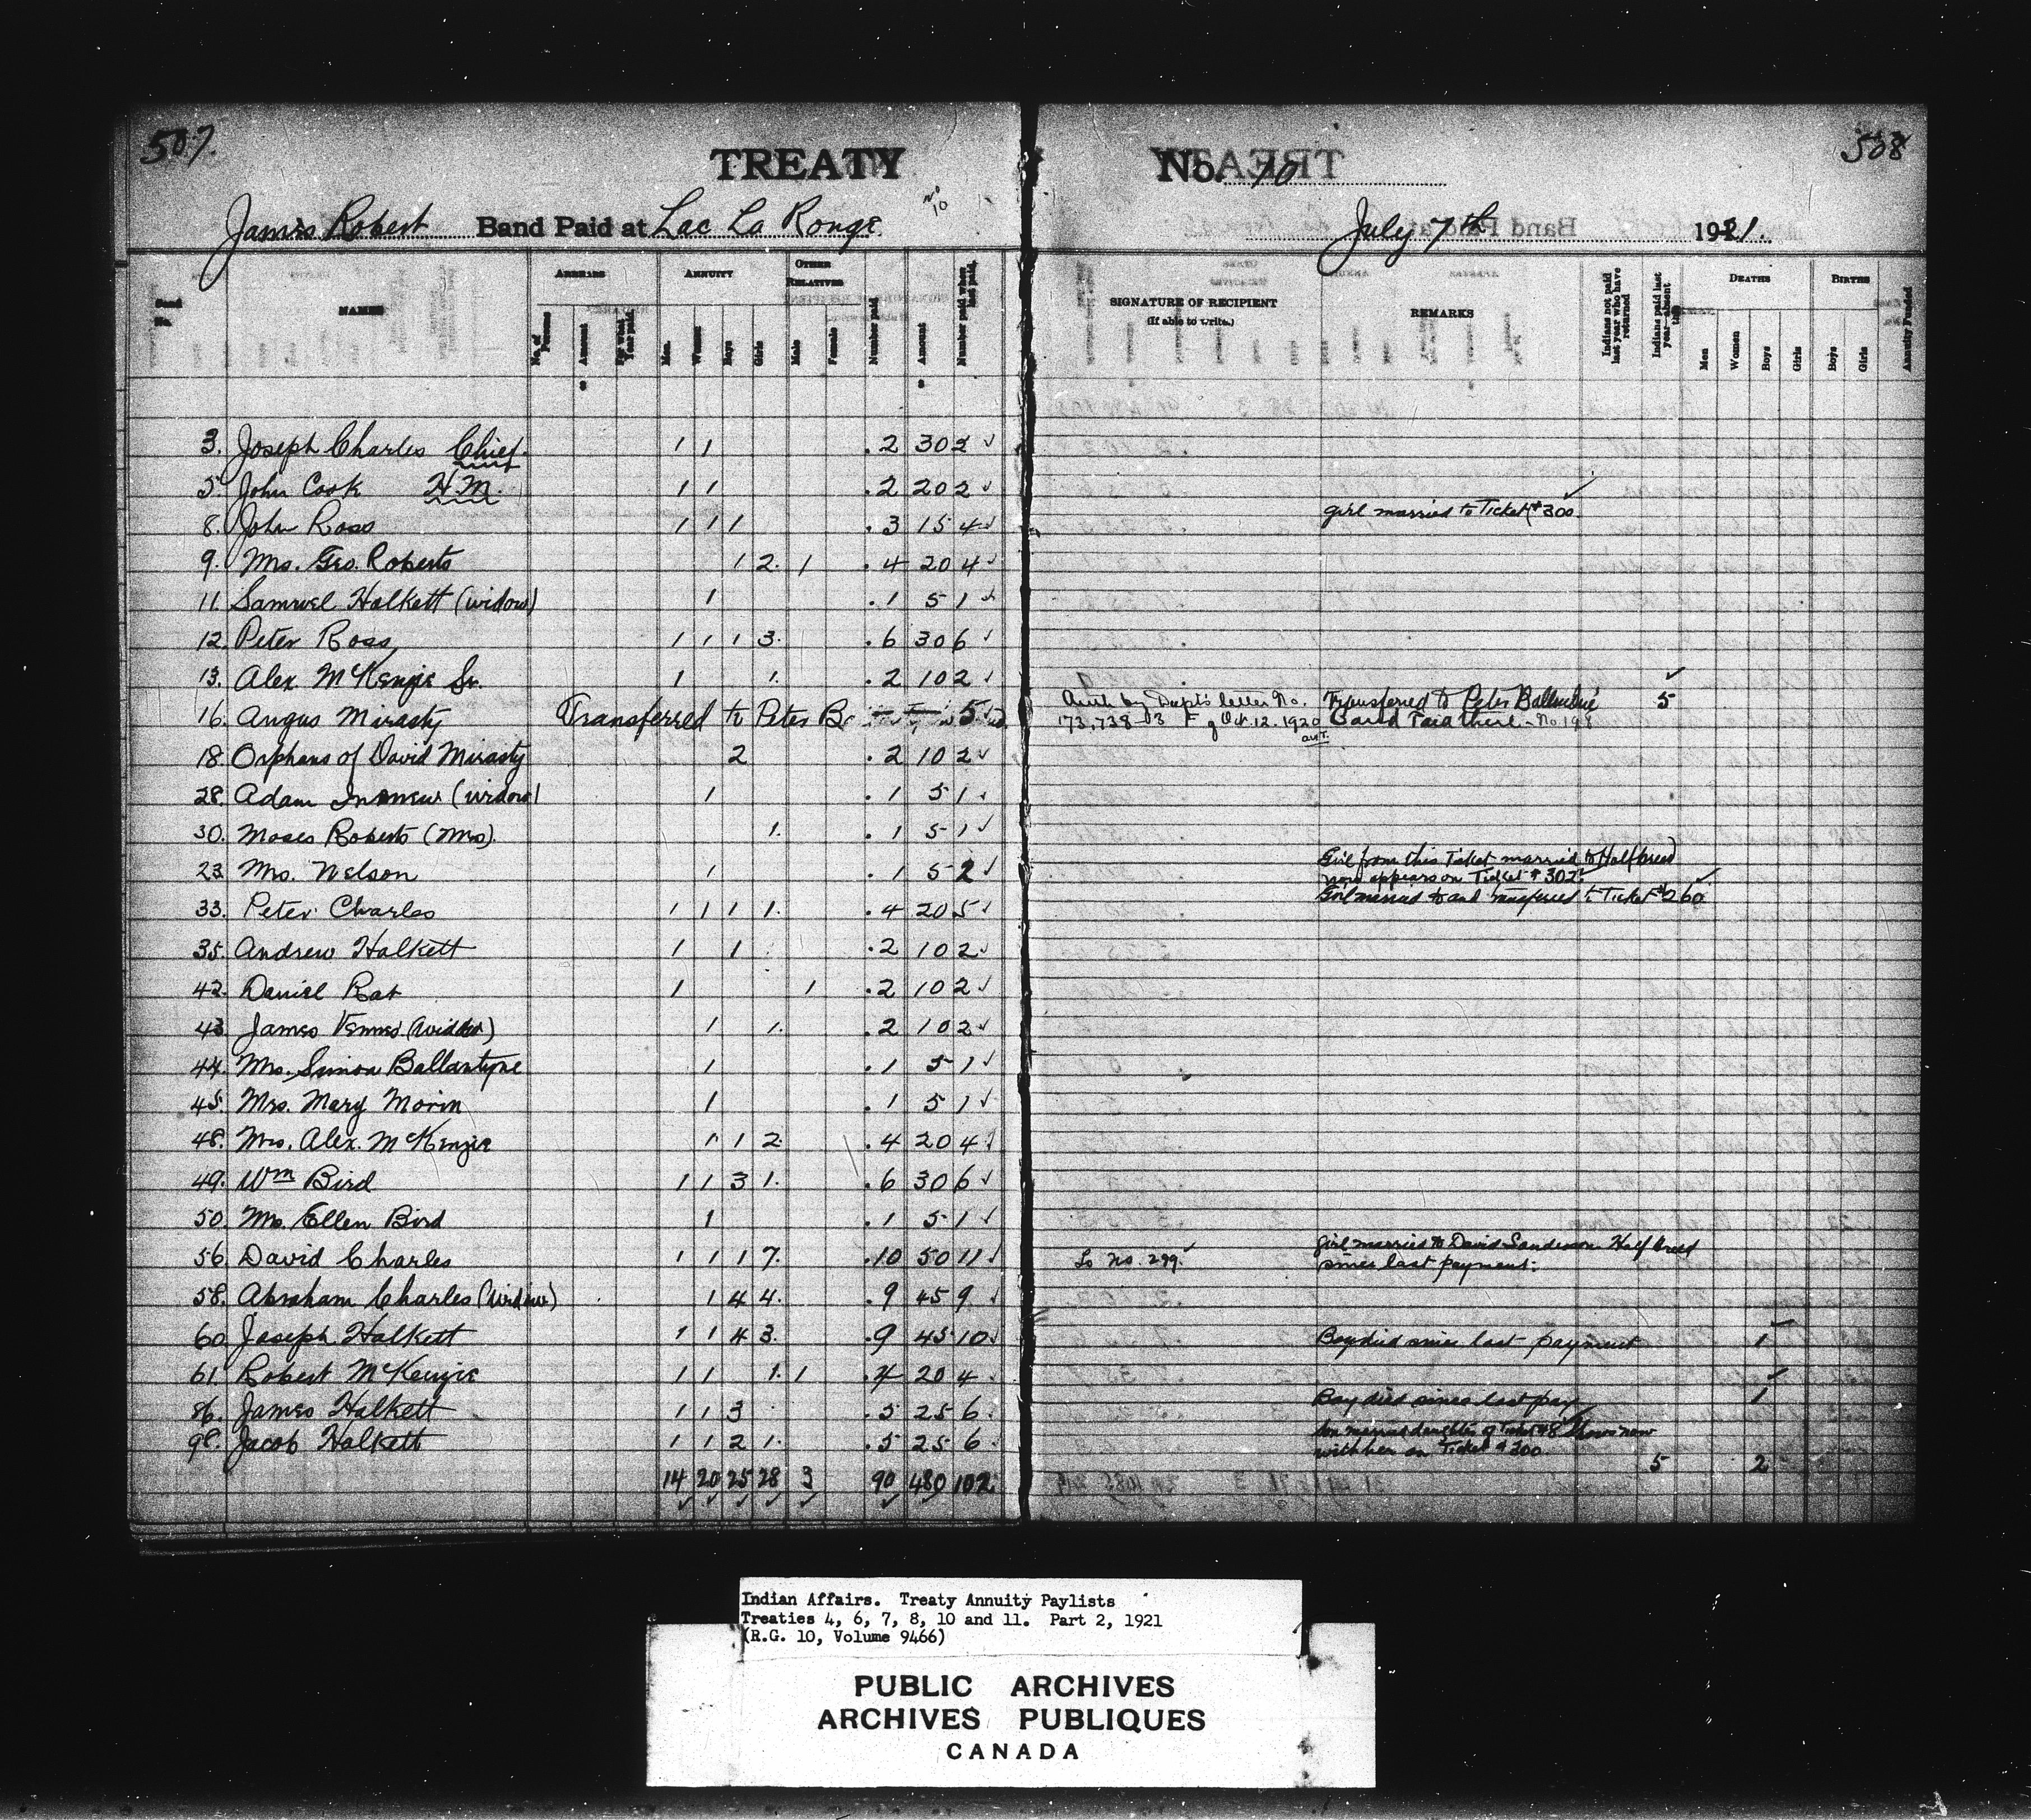 507.
508
TREATY No. 10
James Robert Band Paid at Lac La Ronge No 10 July 7th 1921.
Band No.
NAMES
ARREARS
No. of Persons
Amount
For what Year paid
ANNUITY
Men
Women
Boys
Girls
OTHER RELATIVES
Male
Female
Number paid
Amount
Number paid when last paid.
SIGNATURE OF RECIPIENT
(If able to write.)
REMARKS
Indians not paid last year who have returned
Indians paid last year—absent this
DEATHS
Men
Women
Boys
Girls
BIRTHS
Boys
Girls
Annuity Funded
3. Joseph Charles Chief. 1 1 2 30 2
5. John Cook H.M. 1 1 2 20 2
8. John Ross 1 1 1 3 15 4 girl married to Ticket #300
9. Mrs. Geo. Roberts 1 2. 1 4 20 4
11. Samuel Halkett (widow) 1 1 5 1
12. Peter Ross 1 1 1 3. 6 30 6
13. Alex. McKenzie Sr. 1 1. 2 10 2
16. Angus Mirasty Transferred to Peter B 5 Auth by Dept's letter No. Transferred to Peter Ballendine 5
173,738-13 Oct. 12. 1920 Band Paid there - No 198
18. Orphans of David Mirasty 2 2 10 2
28. Adam (widow) 1 1 5 1
30. Moses Roberts (Mrs). 1. 1 5 1
23. Mrs. Nelson 1 1 5 2 Girl from this Ticket married to Halfbreed
now appears on Ticket # 302.
33. Peter Charles 1 1 1 1. 4 20 5 Girl married to and transferred to Ticket #260
35. Andrew Halkett 1 1 2 10 2
42. Daniel Rat 1 1 2 10 2
43. James Vennes (widow) 1 1. 2 10 2
44. Mrs. Simon Ballantyne 1 1 5 1
45. Mrs. Mary Morin 1 1 5 1
48. Mrs. Alex. McKenzie 1 1 2. 4 20 4
49. Wm Bird 1 1 3 1. 6 30 6
50. Mrs. Ellen Bird 1 1 5 1
56. David Charles 1 1 1 7. 10 50 11 to No. 299. girl married to David Sanderson Half breed
since last payment.
58. Abraham Charles (widow) 1 4 4. 9 45 9
60 Joseph Halkett 1 1 4 3. 9 45 10 Boy died since last payment 1
61. Robert McKenzie 1 1 1. 1 4 20 4
86. James Halkett 1 1 3 5 25 6 Boy died since last pay 1
98. Jacob Halkett 1 1 2 1. 5 25 6 Son married daughter of Ticket #8 shows now
with her on Ticket # 300
14 20 25 28 3 90 480 102 5 2
Indian Affairs. Treaty Annuity Paylists
Treaties 4, 6, 7, 8, 10 and 11. Part 2, 1921
(R.G. 10, Volume 9466)
PUBLIC ARCHIVES
ARCHIVES PUBLIQUES
CANADA